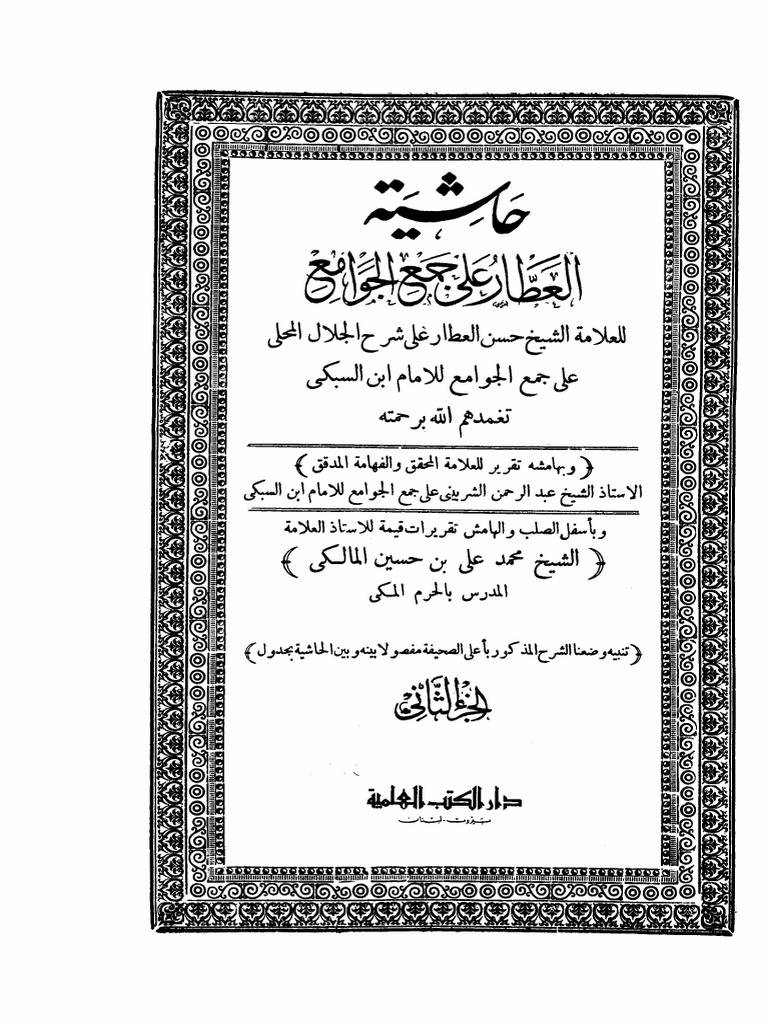 حَاشِيَة
العَطَّارِ عَلَى جَمْعِ الجَوَامِعِ
للعلامة الشيخ حسن العطار على شرح الجلال المحلى
على جمع الجوامع للامام ابن السبكى
تغمدهم الله برحمته
﴿ وبهامشه تقرير للعلامة المحقق والفهامة المدقق ﴾
الاستاذ الشيخ عبد الرحمن الشربينى على جمع الجوامع للامام ابن السبكى
وبأسفل الصلب والهامش تقريرات قيمة للاستاذ العلامة
﴿ الشيخ محمد على بن حسين المالكى ﴾
المدرس بالحرم المكى
﴿ تنبيه وضعنا الشرح المذكور بأعلى الصحيفة مفصولا بينه وبين الحاشية بجدول ﴾
الجزء الثَّانِي
دار الكتب العلمية
بَيْروت - لبْنان